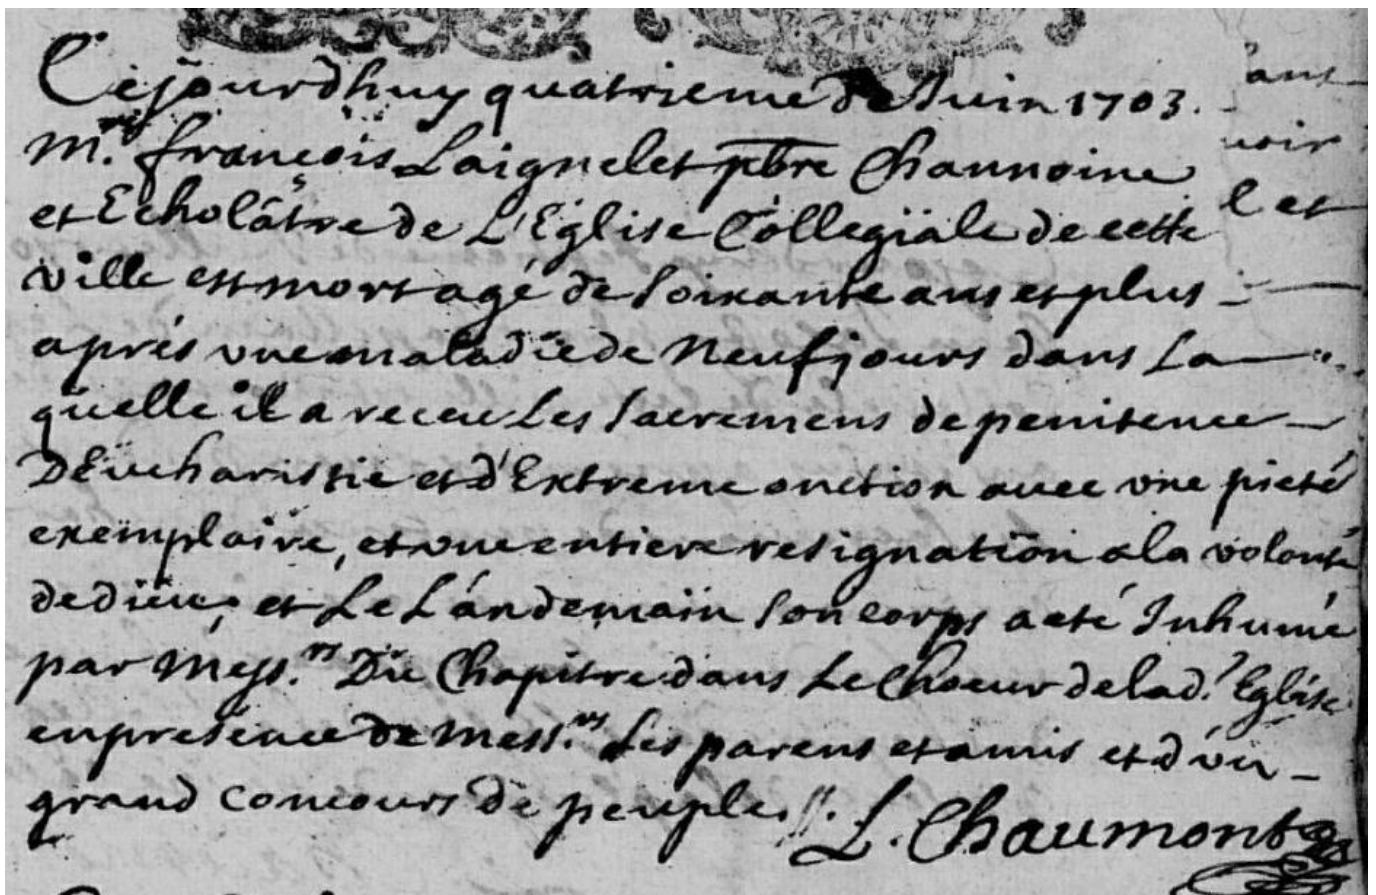 Cejourdhuy quatrieme de Juin 1703.
Mre. françois Laignelet pbre Channoine
et Echolâtre de L'Eglise Collegiale de cette
ville est mort agé de soixante ans et plus
aprés une maladie de neuf jours dans La
quelle il a receu Les sacremens de penitence
D'Eucharistie et d'Extreme onction avec une pieté
exemplaire, et une entiere resignation a la volonté
de dieu, et LeЛандemain son corps a eté Inhumé
par Messrs. Du Chapitre dans Le Choeur de lad. Eglise
en presence de Messrs. Les parens et amis et d'un
grand concours de peuple.
L. Chaumont
ans
voir
l et